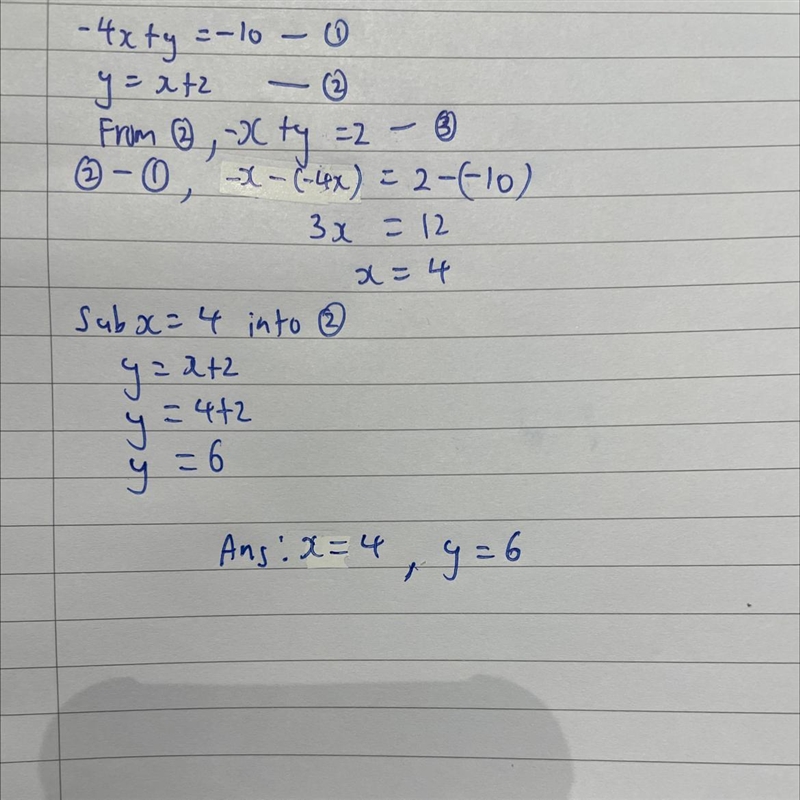 -4x+y = -10 — ①
y = x+2 — ②
From ②, -x+y = 2 — ③
② - ①, -x-(-4x) = 2-(-10)
3x = 12
x = 4
Sub x = 4 into ②
y = x+2
y = 4+2
y = 6
Ans: x = 4, y = 6